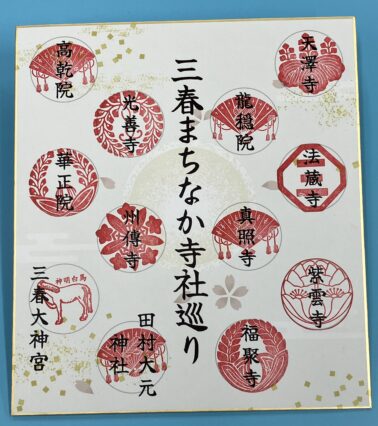 三春まちなか寺社巡り
天澤寺
法蔵寺
紫雲寺
龍穏院
真照寺
福聚寺
光善寺
州傳寺
田村大元
神社
高乾院
華正院
神明白馬
三春大神宮